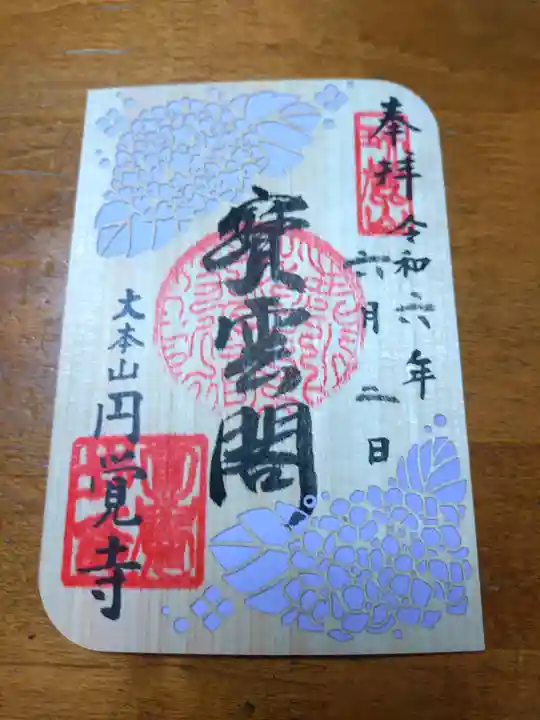 奉拝
令和六年
六月二日
寶雲閣
大本山円覚寺